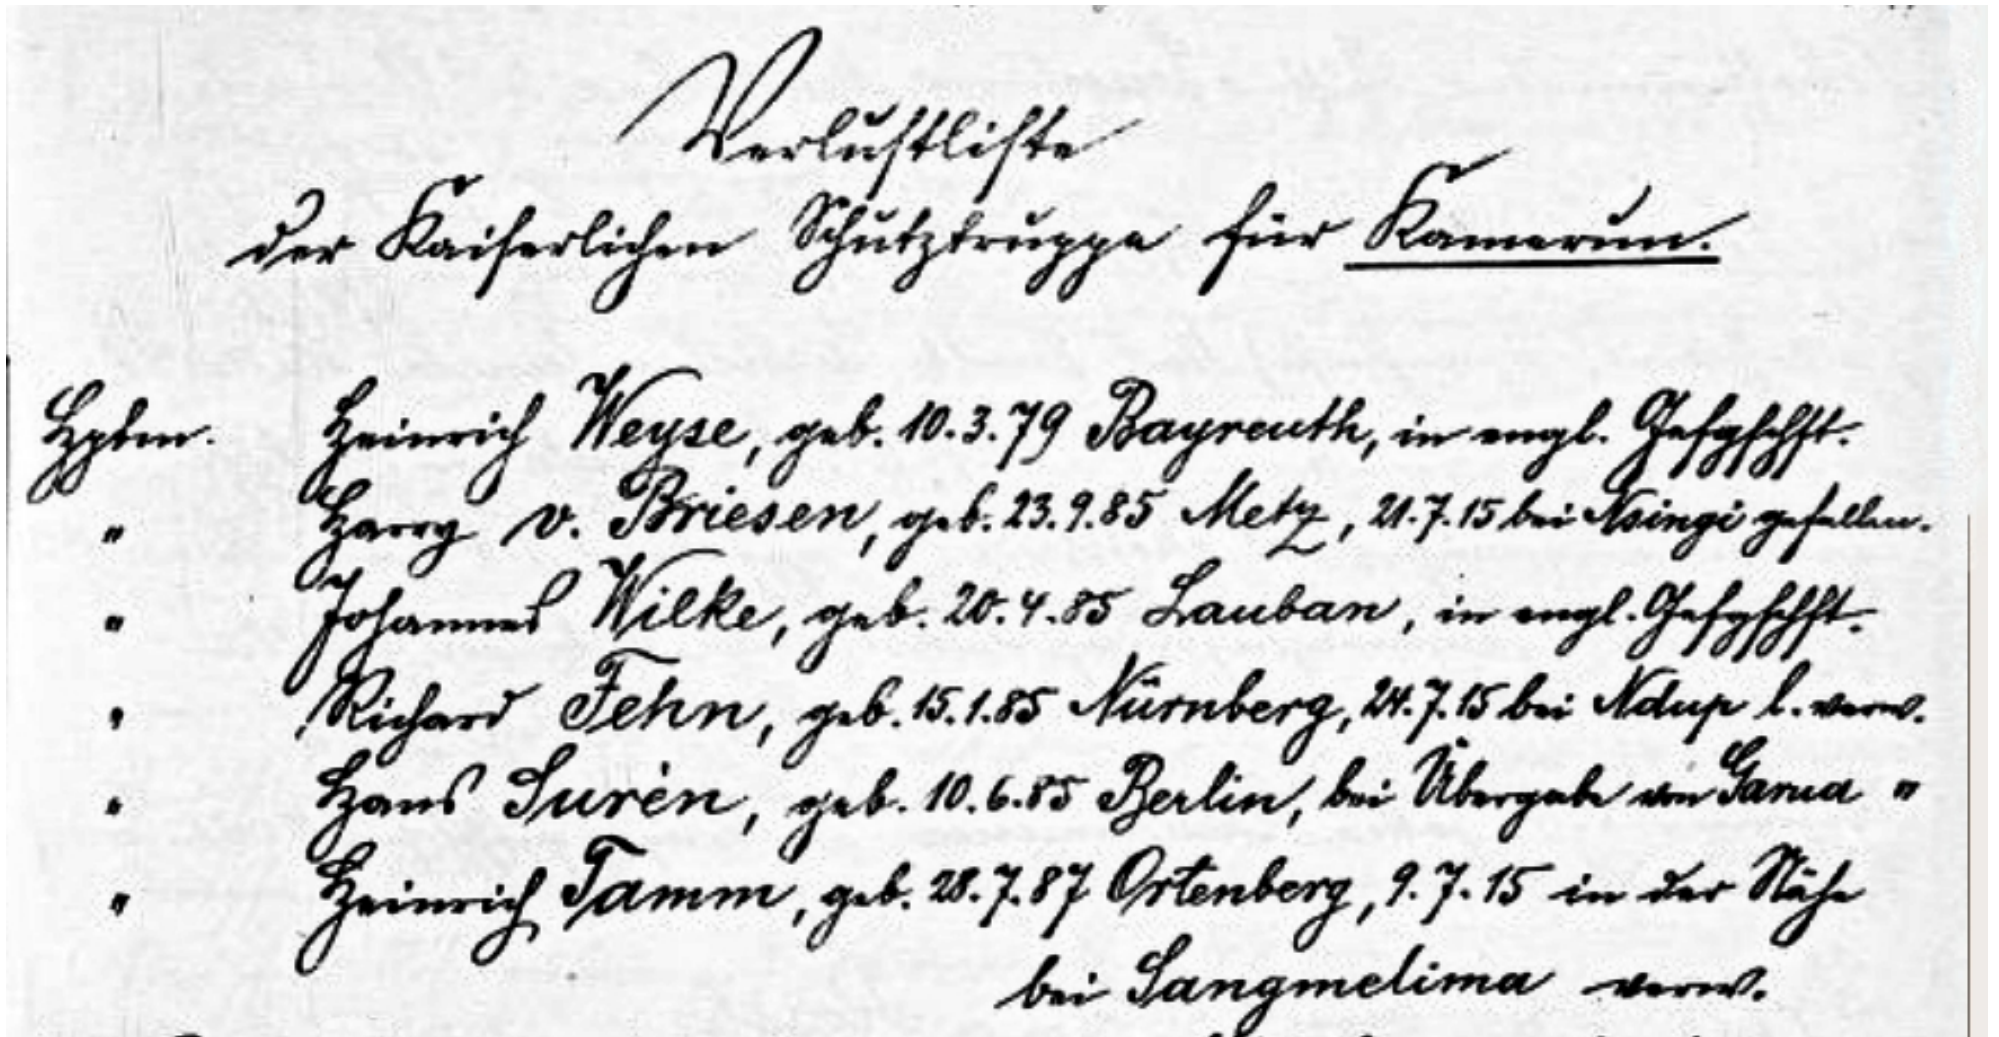 Verlustliste
der Kaiserlichen Schutztruppe für Kamerun.
Hptm. Heinrich Weyse, geb. 10.3.79 Bayreuth, in engl. Gefgschft.
" Harry v. Briesen, geb. 23.9.85 Metz, 21.7.15 bei Nsingi gefallen.
" Johannes Wilke, geb. 20.4.85 Lauban, in engl. Gefgschft.
" Richard Fehn, geb. 15.1.85 Nürnberg, 24.7.15 bei Ndup l. verw.
" Hans Surén, geb. 10.6.85 Berlin, bei Übergabe von Garua "
" Heinrich Tamm, geb. 28.7.87 Ortenberg, 9.7.15 in der Nähe
bei Sangmelima verw.